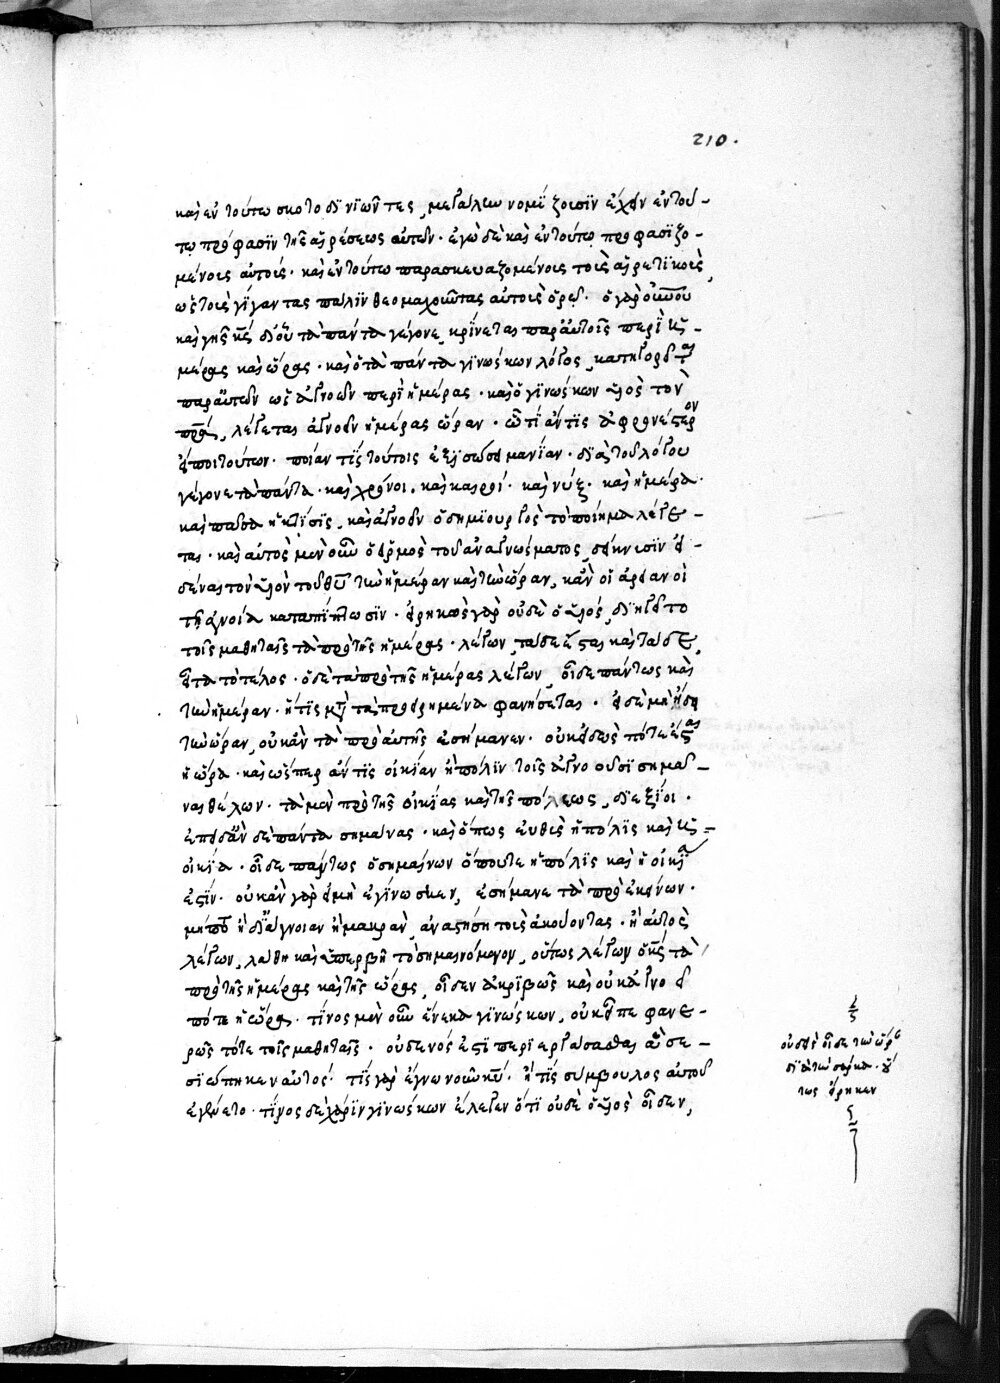 210.
καὶ ἐν τούτω σκοτοδινιῶντες, μεγάλως νομίζουσϊν ἔχειν ἐν του-
τω πρόφασϊν τῆς αἱρέσεως αὐτῶν· ἐγὼ δὲ καὶ ἐν τούτω προφασϊζο-
μένοις αὐτοὺς· καὶ ἐν τούτω παρασκευαζομένοις τοὺς αἱρετϊκοὺς,
ὡς τοὺς γίγαντας πάλϊν θεομαχοῦντας αὐτοὺς ὁρῶ· ὁ γὰρ οὐνοῦ
καὶ γῆς κ̅ς̅ δι' οὗ τὰ πάντα γέγονε, κρίνεται παρ' αὐτοῖς περὶ ἡ-
μέρας καὶ ὥρας· καὶ ὁ τὰ πάντα γϊνώσκων λόγος, κατηγορεῖται
παρ' αὐτῶν ὡς ἀγνοῶν περὶ ἡμέρας· καὶ ὁ γϊνώσκων υἱὸς τὸν
πρα, λέγεται ἀγνοεῖν ἡμέρας ὥραν· ὧ τί ἄν τϊς ἀφρονέστερον
εἴποι τούτων· ποίαν τίς τούτοις ἐξϊσώσει μανίαν· διὰ τοῦ λόγου
γέγονε τὰ πάντα· καὶ χρόνοι, καὶ καιροὶ· καὶ νὺξ· καὶ ἡμέρα·
καὶ πᾶσα ἡ κτίσϊς, καὶ ἀγνοεῖν ὁ δημϊουργὸς τὸ ποίημα λέγε-
ται· καὶ αὐτὸς μὲν οὖν ὁ εἱρμὸς τοῦ ἀναγνώσματος, δείκνυσϊν εἰ-
δέναι τὸν υἱὸν τοῦ θυ τὴν ἡμέραν καὶ τὴν ὥραν, κἂν οἱ ἀρειανοὶ
τῇ ἀγνοία καταπίπτωσϊν· εἰρηκὼς γὰρ οὐδὲ ὁ υἱὸς, διηγεῖτο
τοῖς μαθηταῖς τὰ πρὸ τῆς ἡμέρας· λέγων, τάδε ἔσται καὶ τάδε,
εἶτα τὸ τέλος· ὁ δὲ τὰ πρὸ τῆς ἡμέρας λέγων, οἶδε πάντως καὶ
τὴν ἡμέραν· ἥτις μετὰ τὰ προειρημένα φανήσεται· εἰ δὲ μὴ ἤδει
τὴν ὥραν, οὐκ ἂν τὰ πρὸ αὐτῆς ἐσήμανεν· οὐκ εἰδὼς πότε ἔσται
ἡ ὥρα· καὶ ὥσπερ ἄν τϊς οἰκίαν ἢ πόλϊν τοῖς ἀγνοοῦσϊ σημᾶ-
ναι θέλων· τὰ μὲν πρὸ τῆς οἰκίας καὶ τῆς πόλεως, διεξίοι·
ἐπειδὰν δὲ πάντα σημαίνας· καὶ ὅπως εὐθὺς ἡ πόλϊς καὶ ἡ
οἰκϊα· οἶδε πάντως ὁ σημαίνων ὅπου τε ἡ πόλϊς καὶ ἡ οἰκϊα
ἐστϊν· οὐκ ἂν γὰρ εἰ μὴ ἐγίνωσκεν, ἐσήμανε τὰ πρὸ ἐκείνων·
μήπου ἢ δι' ἄγνοιαν ἢ μακρὰν, ἀναστήση τοὺς ἀκούοντας· ἢ αὐτὸς
λέγων, λάθη καὶ ὑπερβῆ τὸ σημαινόμενον, οὕτως λέγων ὁ κ̅ς̅ τὰ
πρὸ τῆς ἡμέρας καὶ τῆς ὥρας, οἶδεν ἀκριβῶς καὶ οὐκ ἀγνοεῖ
πότε ἡ ὥρα· τίνος μὲν οὖν ἕνεκα γϊνώσκων, οὐκ εἶπε φανε-
ρῶς τότε τοῖς μαθηταῖς· οὐδενός ἐστϊ περιεργάσασθαι ἃ σε-
σιώπηκεν αὐτός· τίς γὰρ ἔγνω νοῦν κυ· ἢ τίς σύμβουλος αὐτοῦ
ἐγένετο· τίνος δὲ χάρϊν γϊνώσκων ἔλεγεν ὅτϊ οὐδὲ ὁ υἱὸς οἶδεν,
οὐδεὶς οἶδε τὴν ὥρ
διὰ τὴν σάρκα· οὕ
τως εἴρηκεν